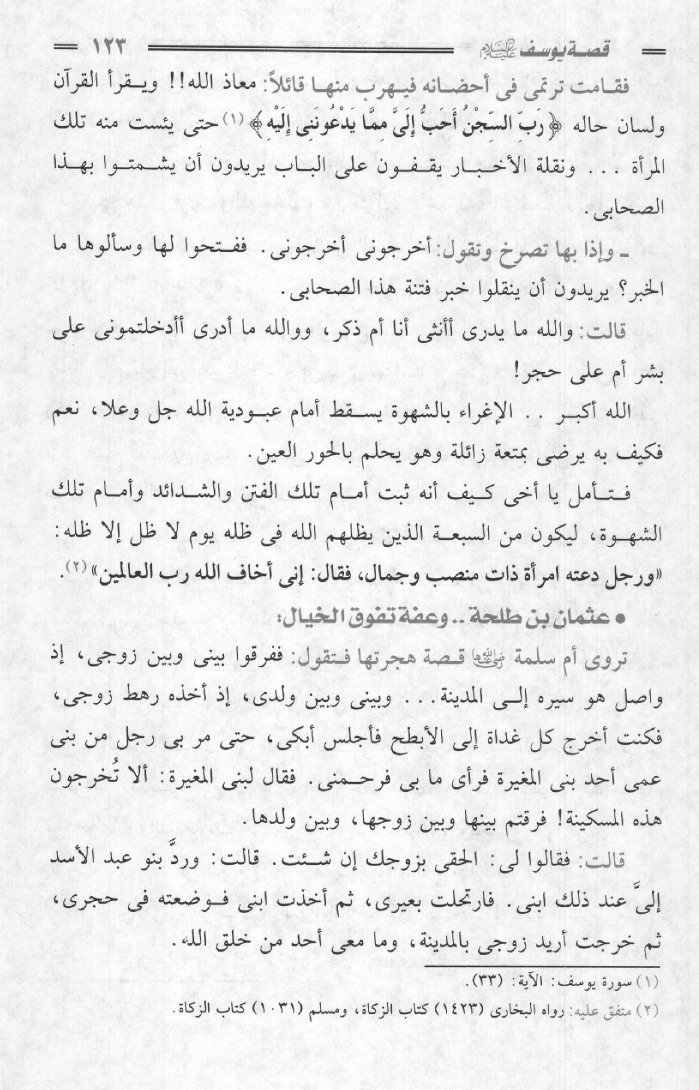 قصة يوسف عليه السلام ١٢٣
فقامت ترتمى فى أحضانه فيهرب منها قائلاً: معاذ الله!! ويقرأ القرآن
ولسان حاله ﴿رَبِّ السِّجْنُ أَحَبُّ إِلَىَّ مِمَّا يَدْعُونَنِى إِلَيْهِ﴾(١) حتى يئست منه تلك
المرأة ... ونقلة الأخبار يقفون على الباب يريدون أن يشمتوا بهذا
الصحابى.
ـ وإذا بها تصرخ وتقول: أخرجونى أخرجونى. ففتحوا لها وسألوها ما
الخبر؟ يريدون أن ينقلوا خبر فتنة هذا الصحابى.
قالت: والله ما يدرى أأنثى أنا أم ذكر، ووالله ما أدرى أأدخلتمونى على
بشر أم على حجر!
الله أكبر .. الإغراء بالشهوة يسقط أمام عبودية الله جل وعلا، نعم
فكيف به يرضى بمتعة زائلة وهو يحلم بالحور العين.
فتأمل يا أخى كيف أنه ثبت أمام تلك الفتن والشدائد وأمام تلك
الشهوة، ليكون من السبعة الذين يظلهم الله فى ظله يوم لا ظل إلا ظله:
«ورجل دعته امرأة ذات منصب وجمال، فقال: إنى أخاف الله رب العالمين»(٢).
• عثمان بن طلحة .. وعفة تفوق الخيال:
تروى أم سلمة رضي الله عنها قصة هجرتها فتقول: ففرقوا بينى وبين زوجى، إذ
واصل هو سيره إلى المدينة... وبينى وبين ولدى، إذ أخذه رهط زوجى،
فكنت أخرج كل غداة إلى الأبطح فأجلس أبكى، حتى مر بى رجل من بنى
عمى أحد بنى المغيرة فرأى ما بى فرحمنى. فقال لبنى المغيرة: ألا تُخرجون
هذه المسكينة! فرقتم بينها وبين زوجها، وبين ولدها.
قالت: فقالوا لى: الحقى بزوجك إن شئت. قالت: وردَّ بنو عبد الأسد
إلىَّ عند ذلك ابنى. فارتحلت بعيرى، ثم أخذت ابنى فوضعته فى حجرى،
ثم خرجت أريد زوجى بالمدينة، وما معى أحد من خلق الله.
(١) سورة يوسف: الآية: (٣٣).
(٢) متفق عليه: رواه البخارى (١٤٢٣) كتاب الزكاة، ومسلم (١٠٣١) كتاب الزكاة.